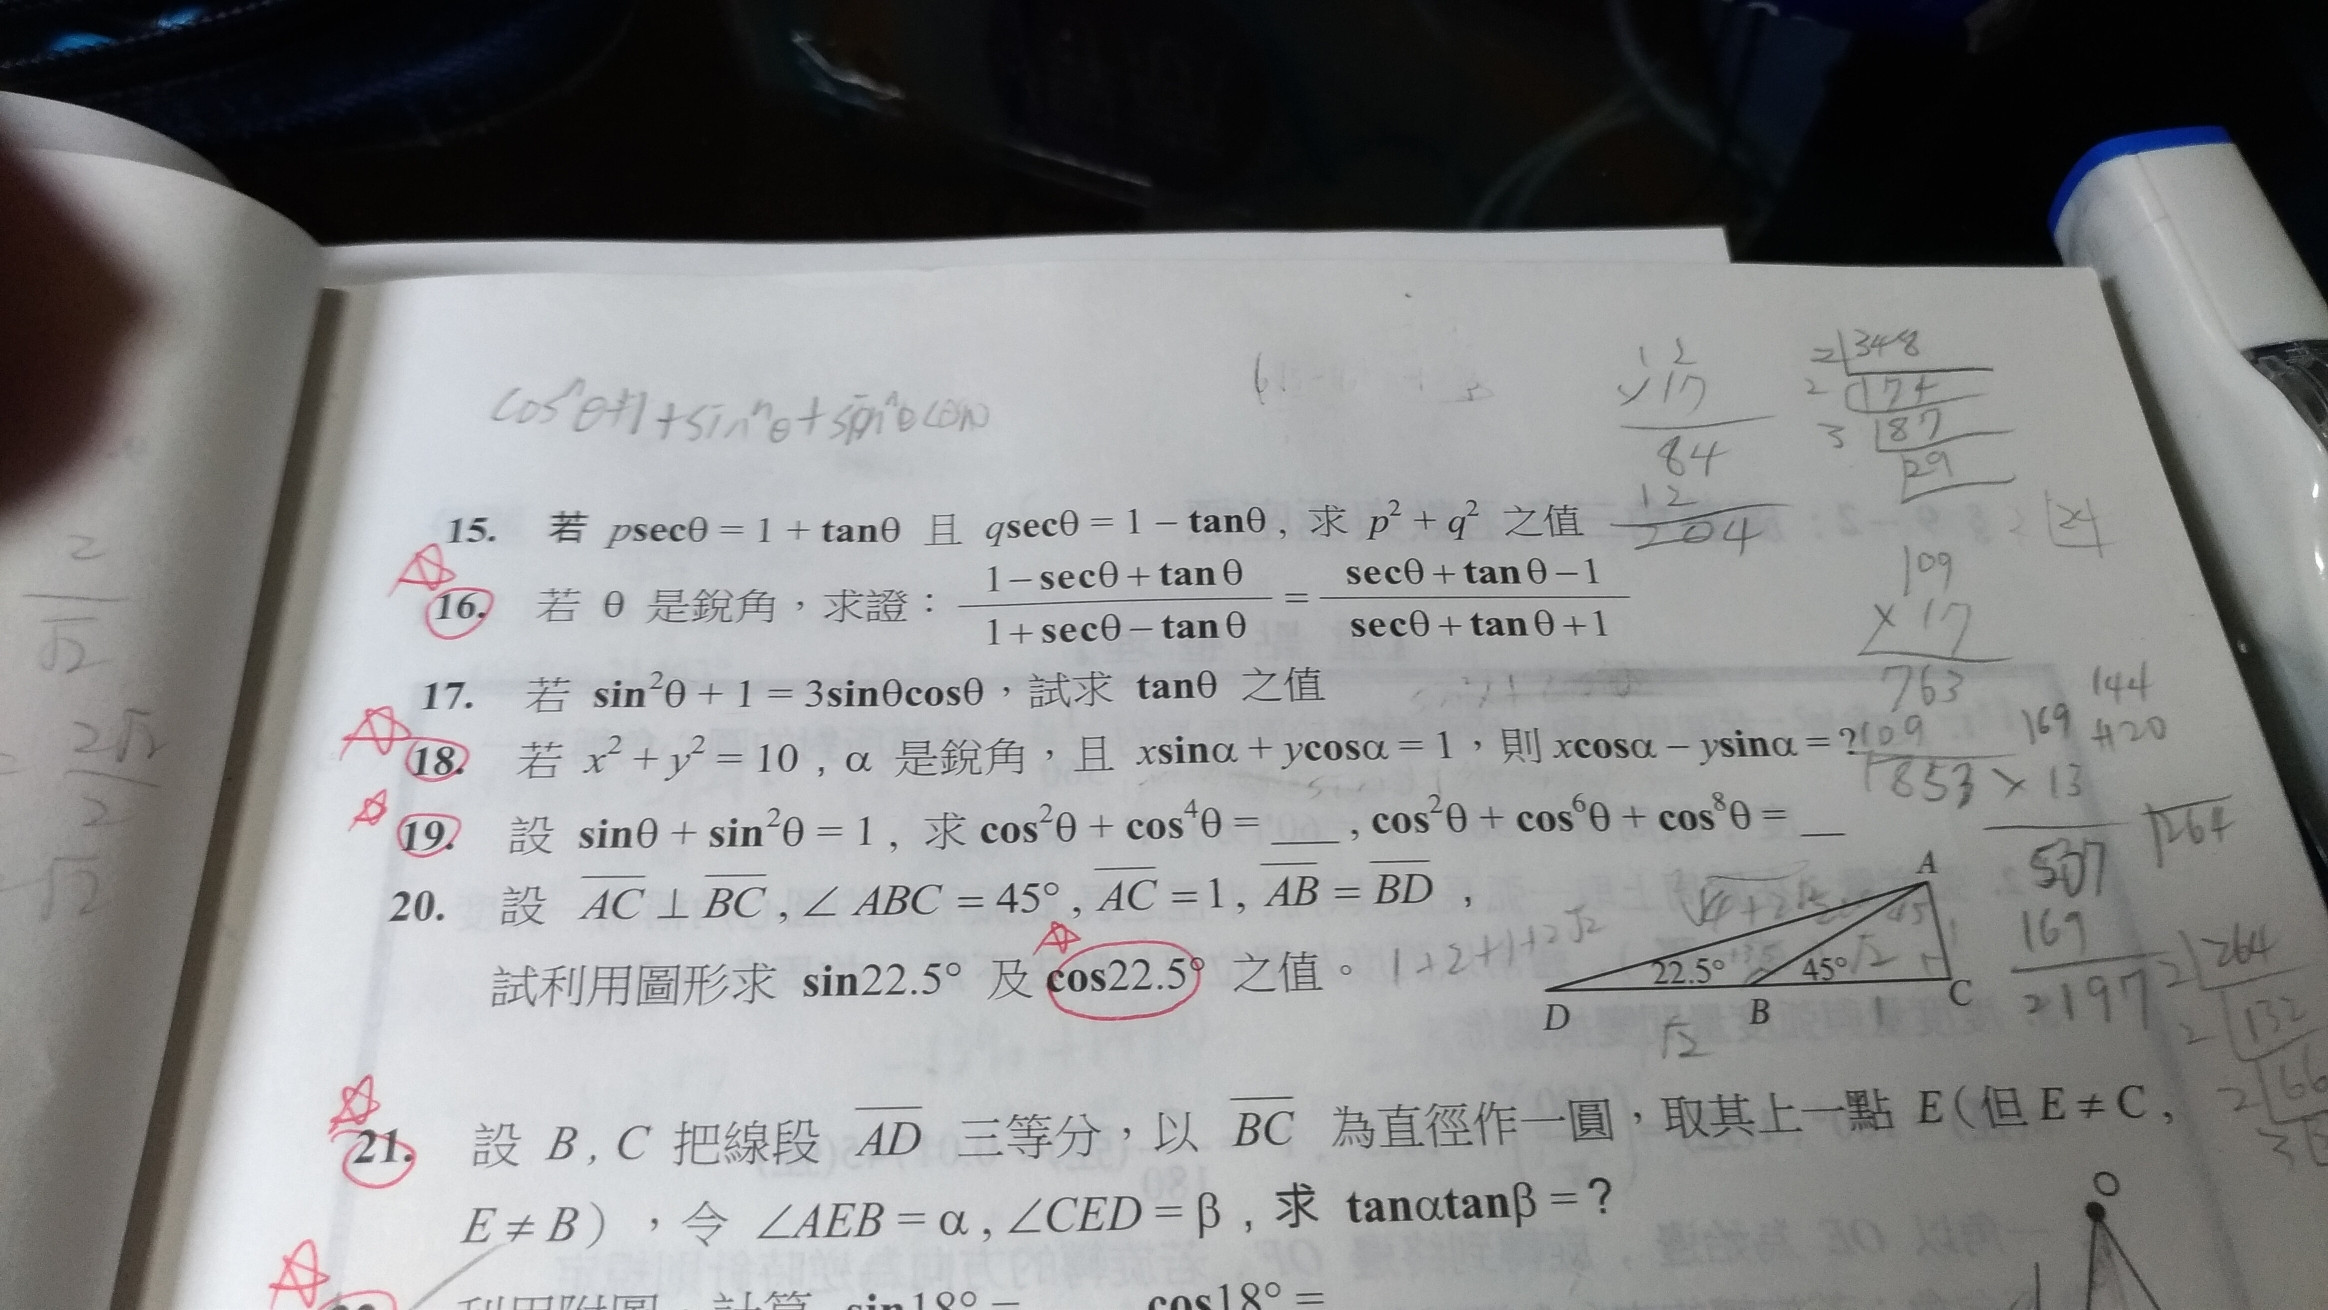 cosⁿθ+1+sinⁿθ+sinⁿθcosθ
1 2
×17
84
12
204
2 348
2 174
3 87
29
24
15. 若 psecθ = 1 + tanθ 且 qsecθ = 1 − tanθ , 求 p² + q² 之值
16. 若 θ 是銳角，求證： (1 − secθ + tanθ)/(1 + secθ − tanθ) = (secθ + tanθ − 1)/(secθ + tanθ + 1)
17. 若 sin²θ + 1 = 3sinθcosθ，試求 tanθ 之值
18. 若 x² + y² = 10 , α 是銳角，且 xsinα + ycosα = 1，則 xcosα − ysinα = ?
19. 設 sinθ + sin²θ = 1 , 求 cos²θ + cos⁴θ = __ , cos²θ + cos⁶θ + cos⁸θ = __
20. 設 AC ⊥ BC , ∠ABC = 45° , AC = 1 , AB = BD ,
試利用圖形求 sin22.5° 及 cos22.5° 之值。
1+2+1+2√2
A
45
22.5°
45°
√2
1
D
B
1
C
√2
21. 設 B , C 把線段 AD 三等分，以 BC 為直徑作一圓，取其上一點 E（但 E ≠ C ,
E ≠ B），令 ∠AEB = α , ∠CED = β , 求 tanαtanβ = ?
sin18° =
cos18° =
109
×17
763
109
1853
169
×13
507
169
2197
144
√264
2 264
2 132
2 66
3
2
√2
2√2
2
√2